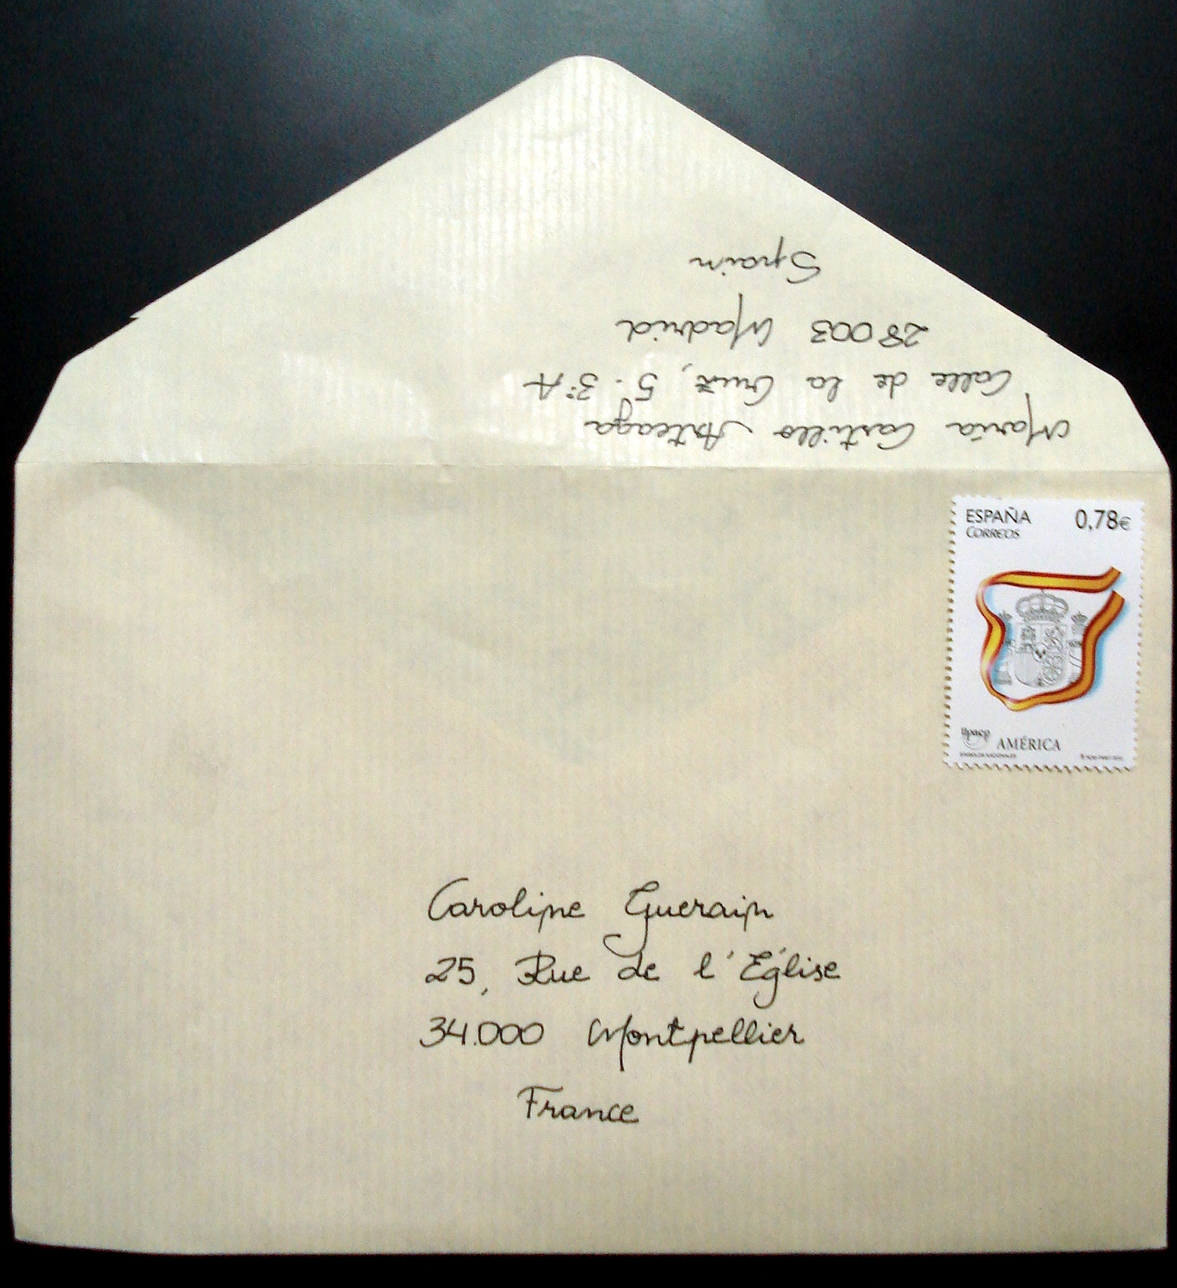 María Castillo Arteaga
Calle de la Cruz, 5. 3º A
28003 Madrid
Spain
ESPAÑA 0,78€
CORREOS
upaep AMÉRICA
Caroline Guerain
25, Rue de l'Église
34.000 Montpellier
France